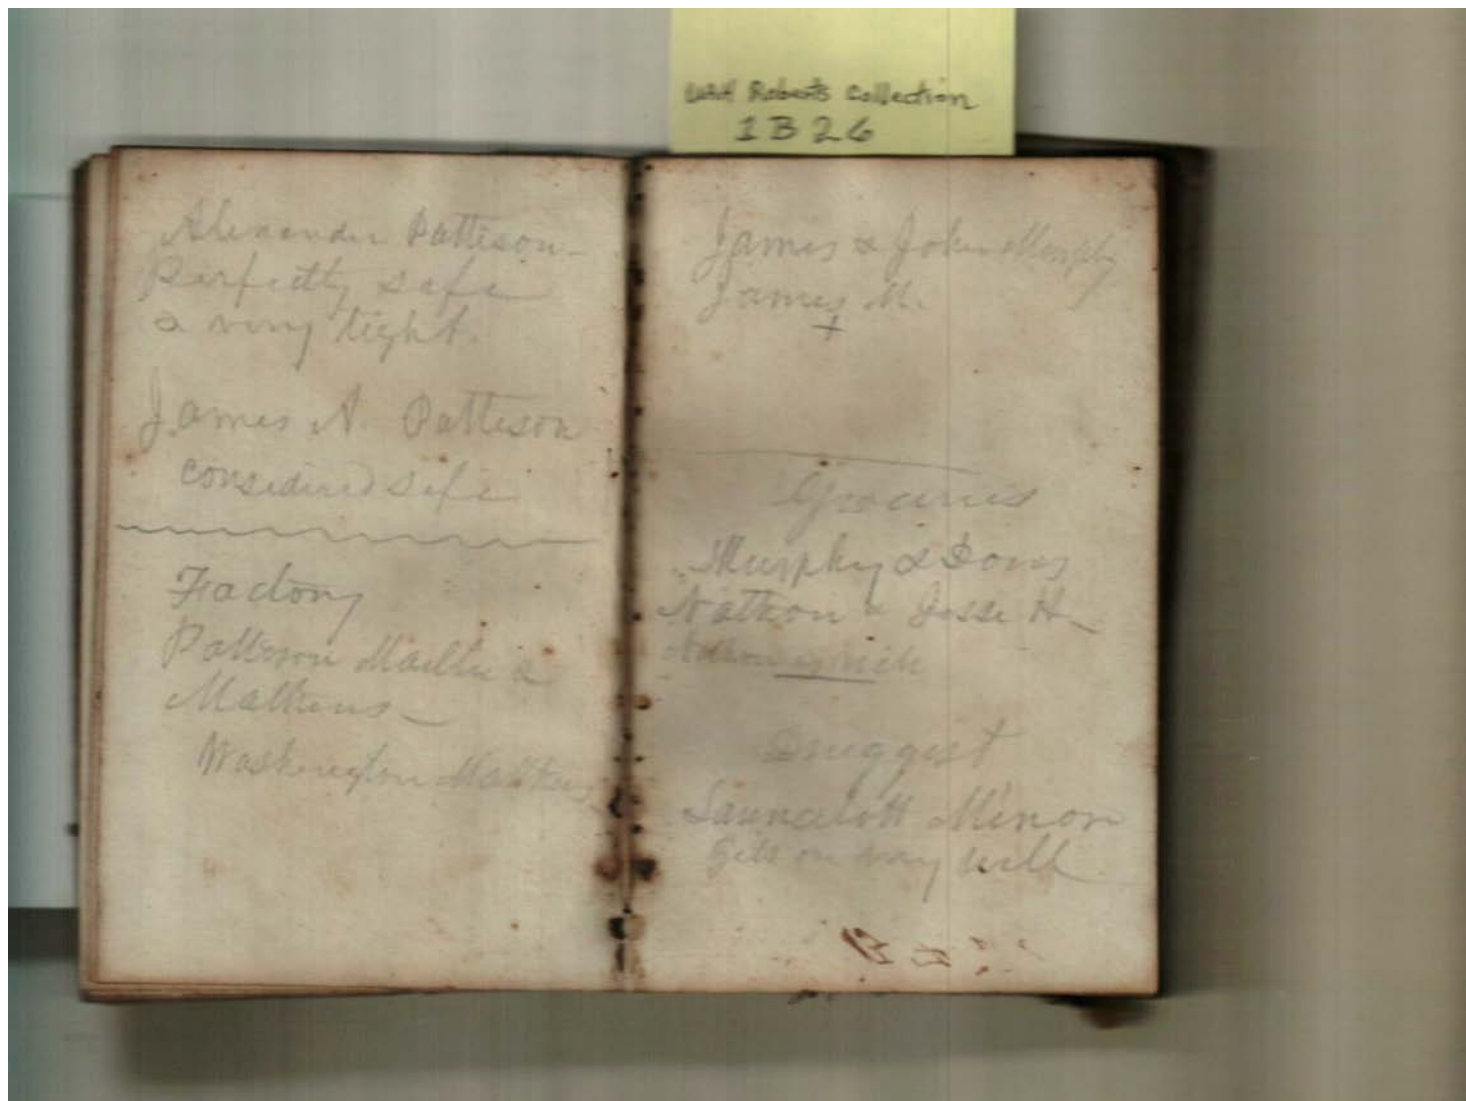 WAH Roberts Collection
1B26
Alexander Patteson -
Perfectly safe
& very tight.
James A. Patteson
considered safe
Factory
Patteson &
Mathews -
Washington
James & John Murphy
James M.
+
Groceries
Murphy & Sons
Nathan & Jesse H -
Nathan is rich
Druggist
Launcelott Minor
Gets on very well